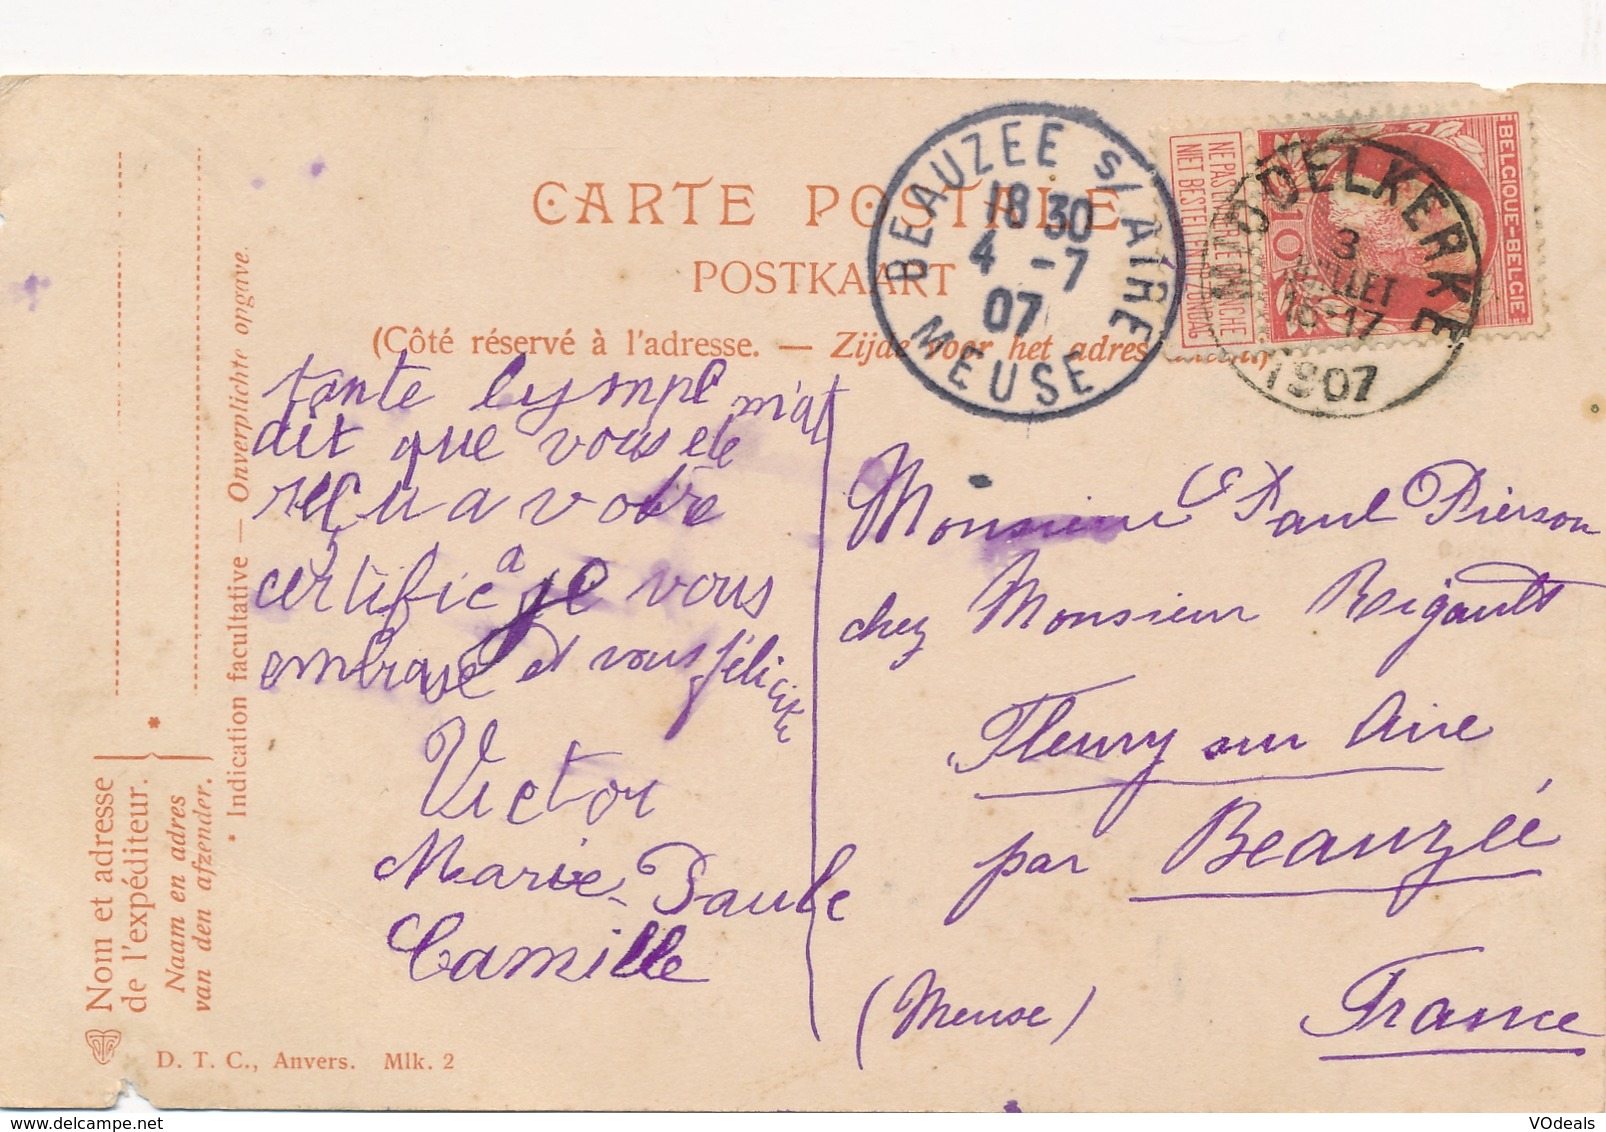 CARTE POSTALE
POSTKAART
(Côté réservé à l'adresse. — Zijde voor het adres
BEAUZEE S/AIRE
18 30
4 -7
07
MEUSE
BELGIQUE-BELGIE
10
NE PAS LIVRER LE DIMANCHE
NIET BESTELLEN OP ZONDAG
MIDDELKERKE
3
JUILLET
16-17
1907
tante lympe m'at
dit que vous ete
reçu a votre
certific a je vous
embrase et vous félicite
Victor
Marie-Paule
Camille
Monsieur Paul Pierson
chez Monsieur Rigault
Fleury sur Aire
par Beauzée
(Meuse) France
Nom et adresse
de l'expéditeur.
Naam en adres
van den afzender.
* Indication facultative — Onverplichte opgave.
D. T. C., Anvers. Mlk. 2
VOdeals